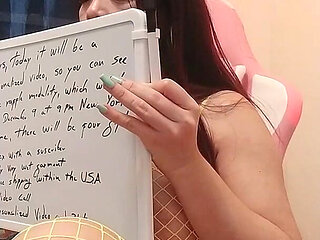 rs, today it will be a
nalized video, so you can see
e rapple modality, which w
December 9 at 9 pm New York
me, there will be four gi
eo with a suscriber
y very wet garment
ee shipping within the USA
ideo Call
sonalized Video